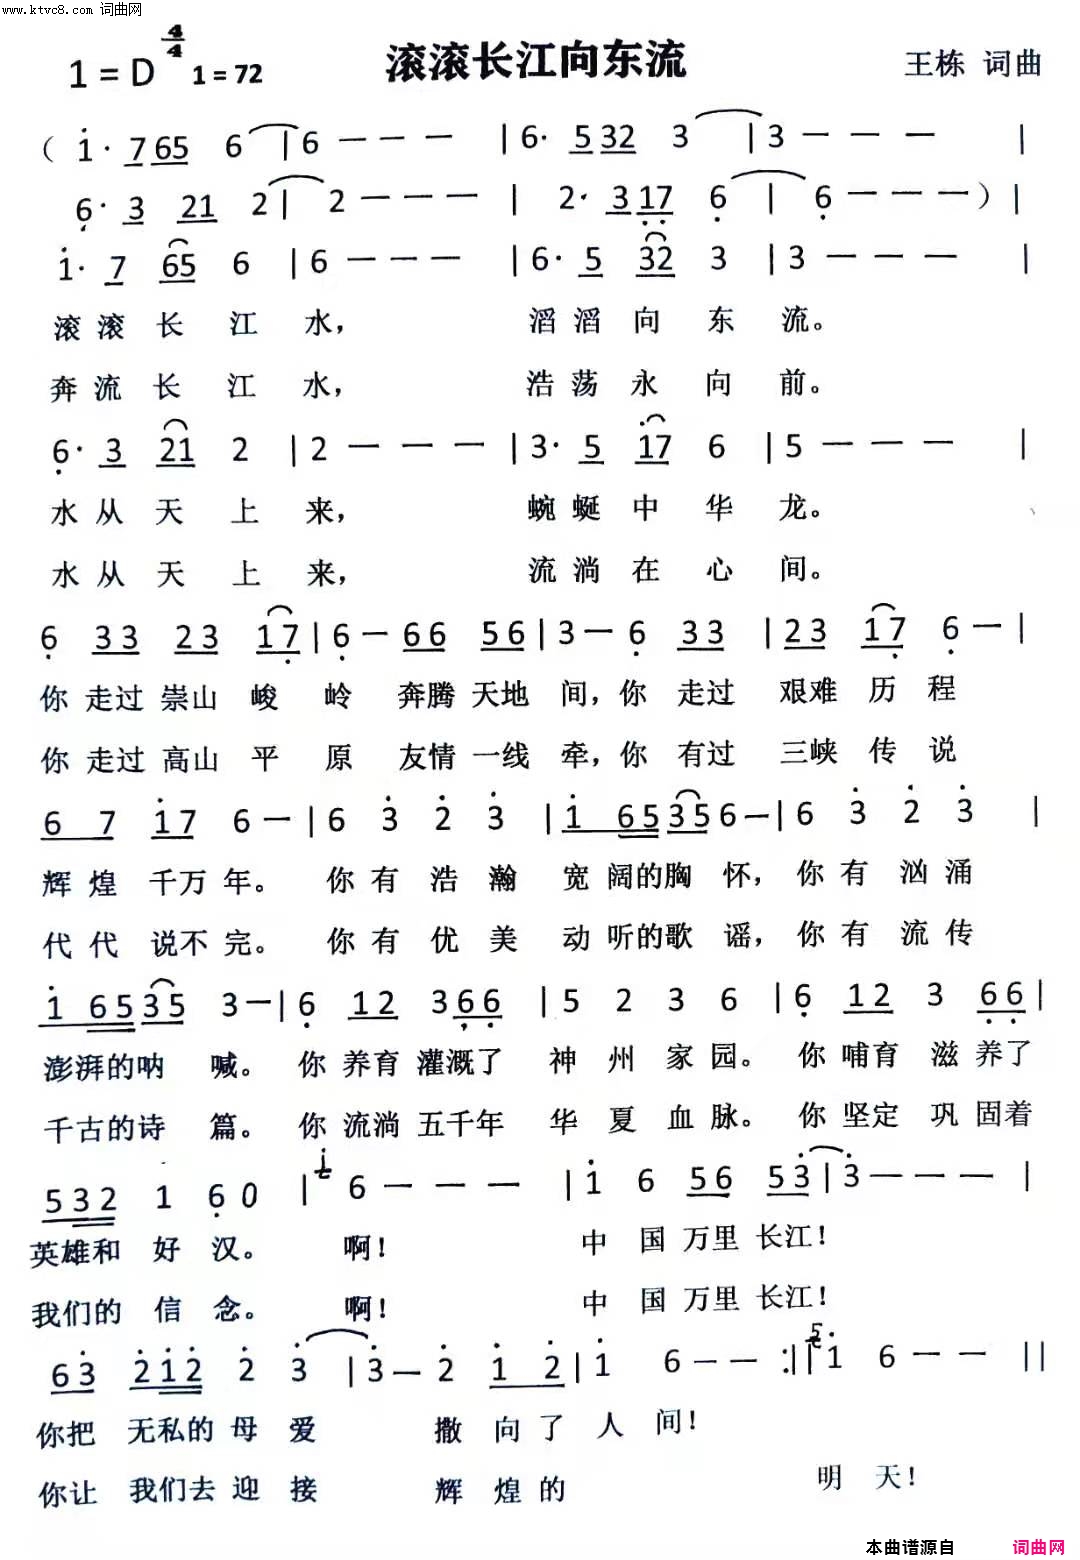 www.ktvc8.com 词曲网
1 = D 4/4 1 = 72 滚滚长江向东流 王栋 词曲
( 1· 7 65 6 | 6 — — — | 6· 5 32 3 | 3 — — — |
6· 3 21 2 | 2 — — — | 2· 3 17 6 | 6 — — — ) |
1· 7 65 6 | 6 — — — | 6· 5 32 3 | 3 — — — |
滚 滚 长 江 水, 滔 滔 向 东 流。
奔 流 长 江 水, 浩 荡 永 向 前。
6· 3 21 2 | 2 — — — | 3· 5 17 6 | 5 — — — |
水 从 天 上 来, 蜿 蜒 中 华 龙。
水 从 天 上 来, 流 淌 在 心 间。
6 33 23 17 | 6 — 66 56 | 3 — 6 33 | 23 17 6 — |
你 走过 崇山 峻 岭 奔腾 天地 间, 你 走过 艰难 历 程
你 走过 高山 平 原 友情 一线 牵, 你 有过 三峡 传 说
6 7 17 6 — | 6 3 2 3 | 1 65 35 6 — | 6 3 2 3 |
辉 煌 千万 年。 你 有 浩 瀚 宽 阔的胸 怀, 你 有 汹 涌
代 代 说不 完。 你 有 优 美 动 听的歌 谣, 你 有 流 传
1 65 35 3 — | 6 12 3 66 | 5 2 3 6 | 6 12 3 66 |
澎湃的呐 喊。 你 养育 灌溉了 神 州 家 园。 你 哺育 滋 养了
千古的诗 篇。 你 流淌 五千年 华 夏 血 脉。 你 坚定 巩 固着
532 1 60 | 1 6 — — — | 1 6 56 53 | 3 — — — |
英雄和 好 汉。 啊! 中 国 万里 长江!
我们的 信 念。 啊! 中 国 万里 长江!
63 212 2 3 | 3 — 2 1 2 | 1 6 — — :|| 5 1 6 — — ||
你把 无私的 母 爱 撒 向 了 人 间!
你让 我们去 迎 接 辉 煌 的 明 天!
本曲谱源自 词曲网